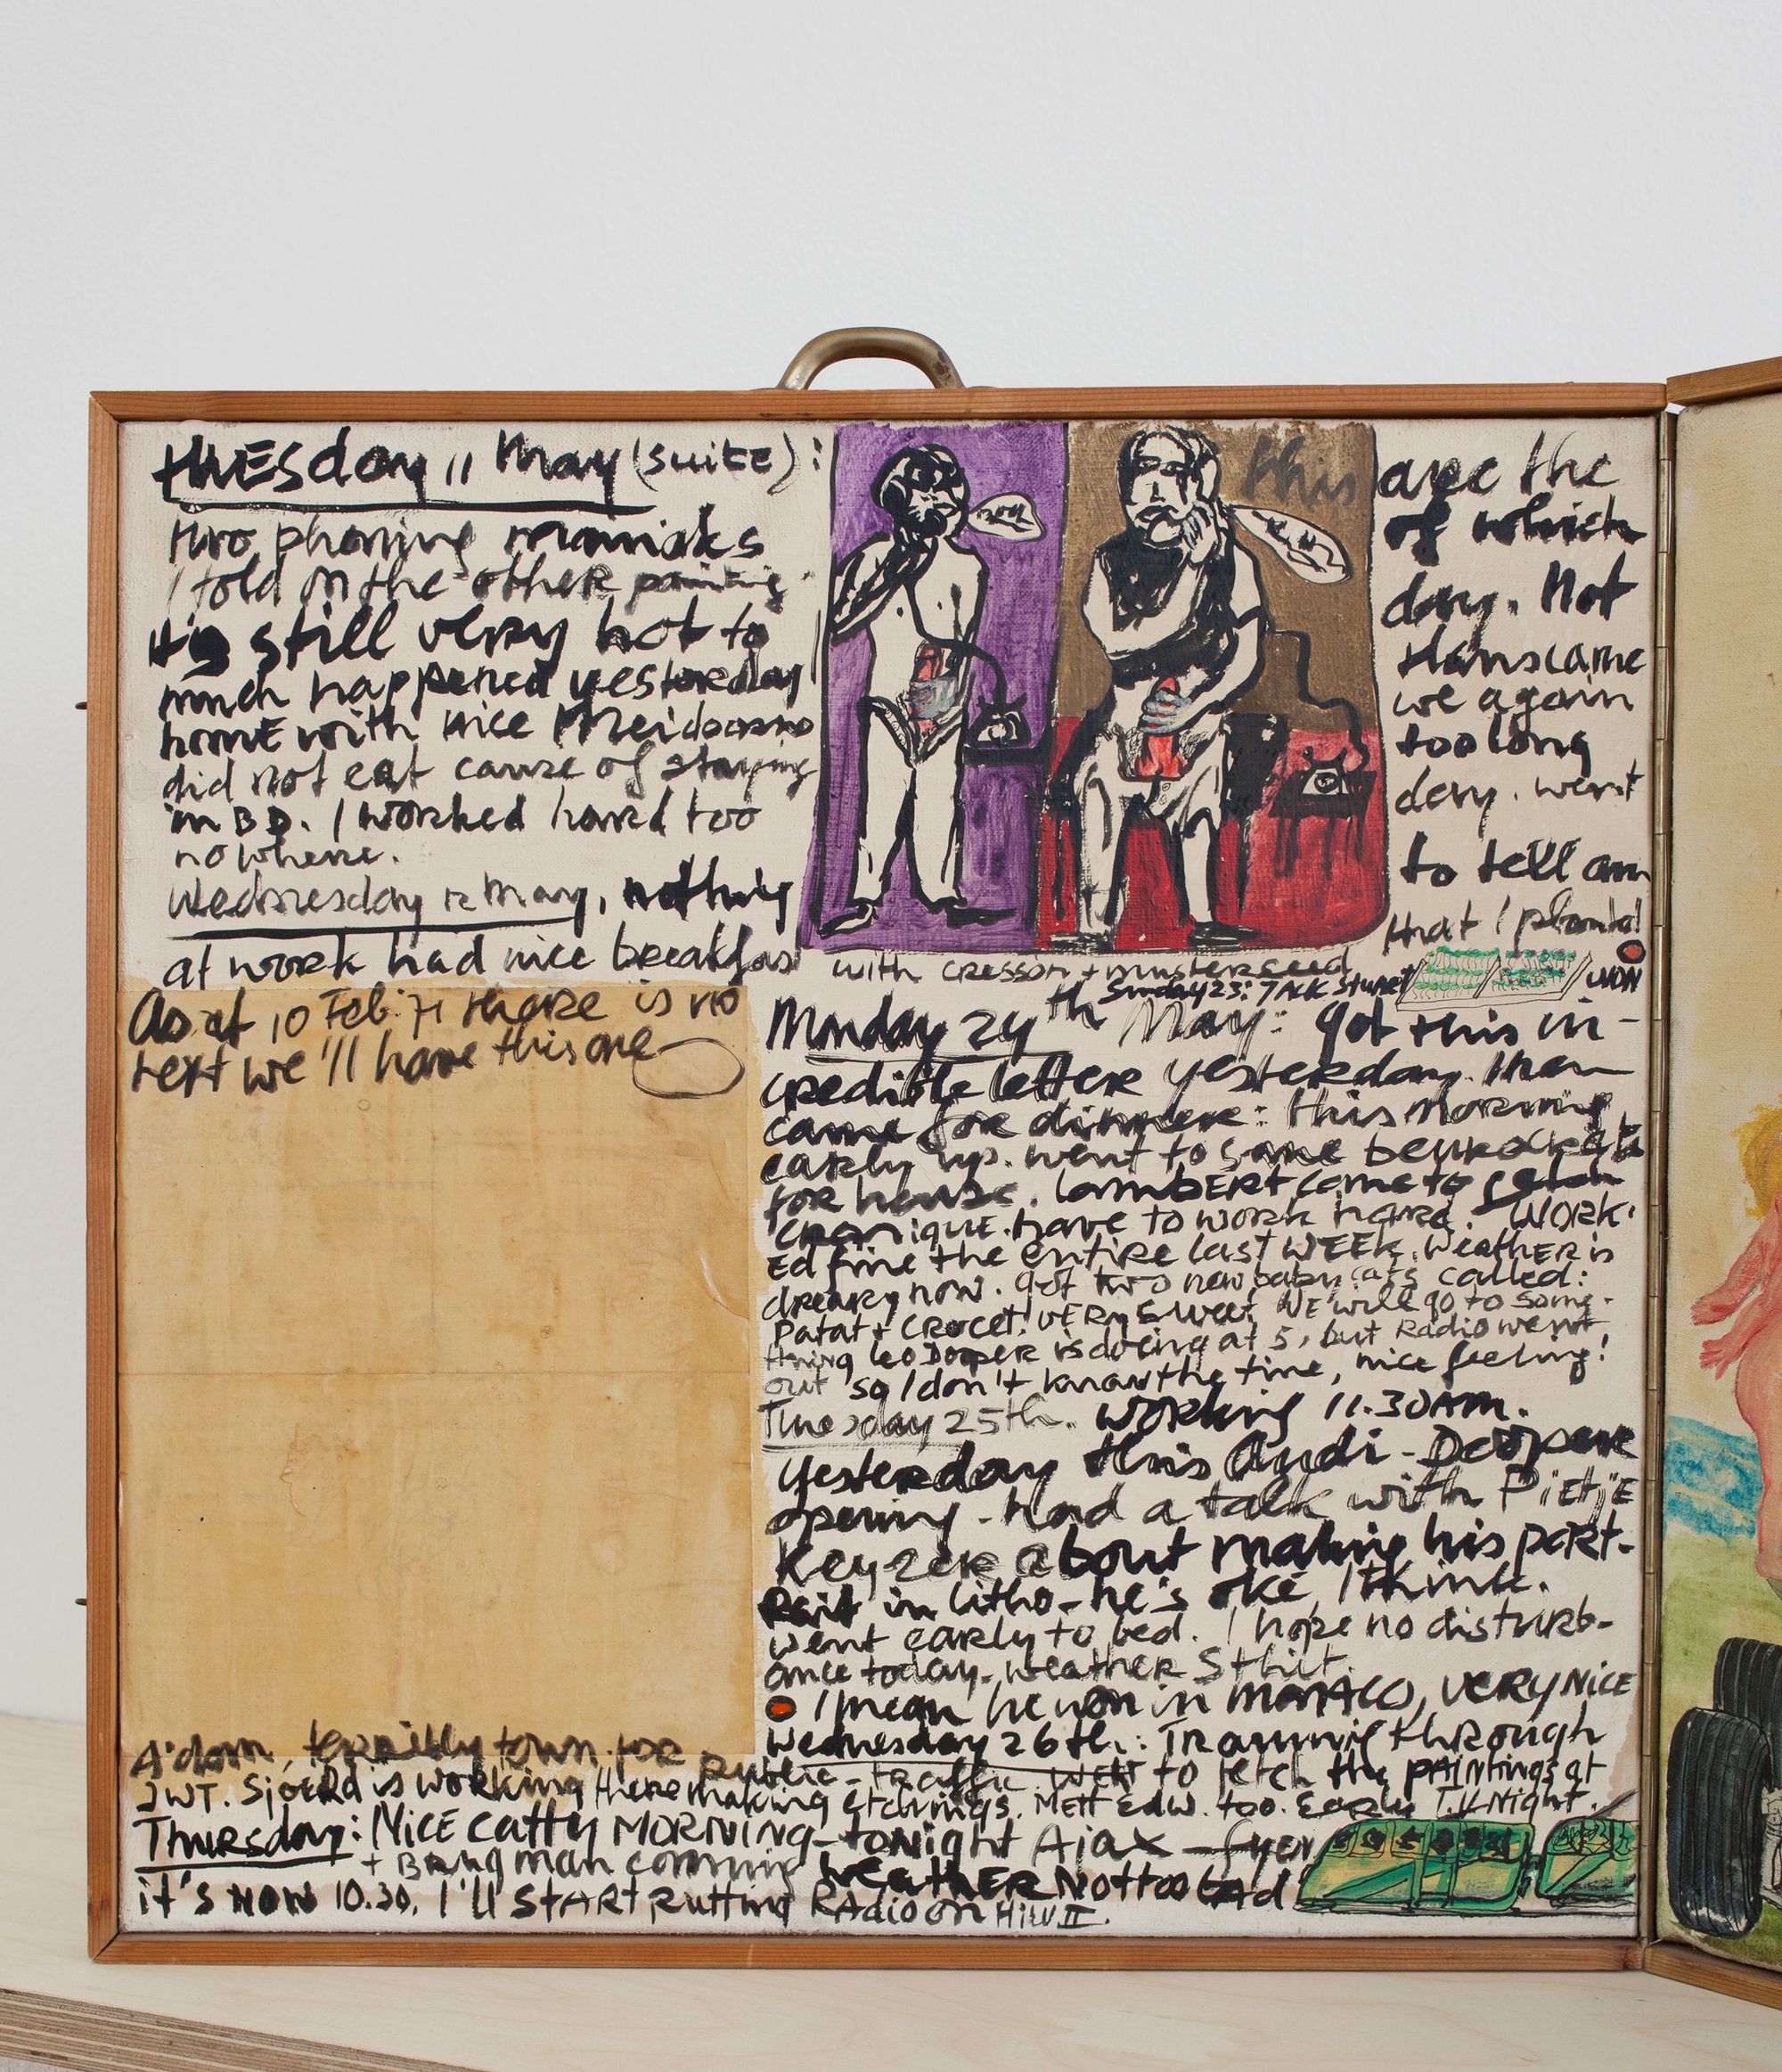 tuesday 11 may (suite): this are the
two phoning maniaks of which
I told on the other painting day. Not
it's still very hot to
much happened yesterday Hans came
home with nice we again
did not eat cause of staying too long
in BD. I worked hard too day. went
nowhere.
Wednesday 12 may, nothing to tell am
at work had nice breakfast that I plantd!
with cresson + musterseed
Sunday 23: JACK Stuwet WON
As at 10 Feb. 71 there is no
text we'll have this one
Monday 24th May: got this in-
credible letter yesterday. Men
came for dinner: this morning
early up. went to some
for house. Lambert came to
Cranique. have to work hard. Work-
Ed fine the entire last WEEK. Weather is
dreary now. got two new baby cats called:
Patat + Crocet! VERY Sweet. WE will go to some-
thing Leo Dooper is doing at 5, but Radio went
out so I don't know the time, nice feeling!
Tuesday 25th. working 11.30 AM.
Yesterday this Audi-Dooper
opening - Had a talk with Pietje
Keyzer about making his port-
Rait in litho - he's oké I think.
went early to bed. I hope no disturb-
ance today. weather Sthilt.
I mean he won in MONACO, VERY NICE
Wednesday 26th: Tramming through
A'dam, terribly town for public-traffic. WENT to fetch the PAINtings at
JWT. Sjoerd is working there making etchings. Mett Edw. too. Early T.V. Night.
Thursday: NICE catty MORNING - tonight Ajax -
+ Bang man comming weather Not too bad
it's now 10.30, I'll start putting RAdio on Hilv II.